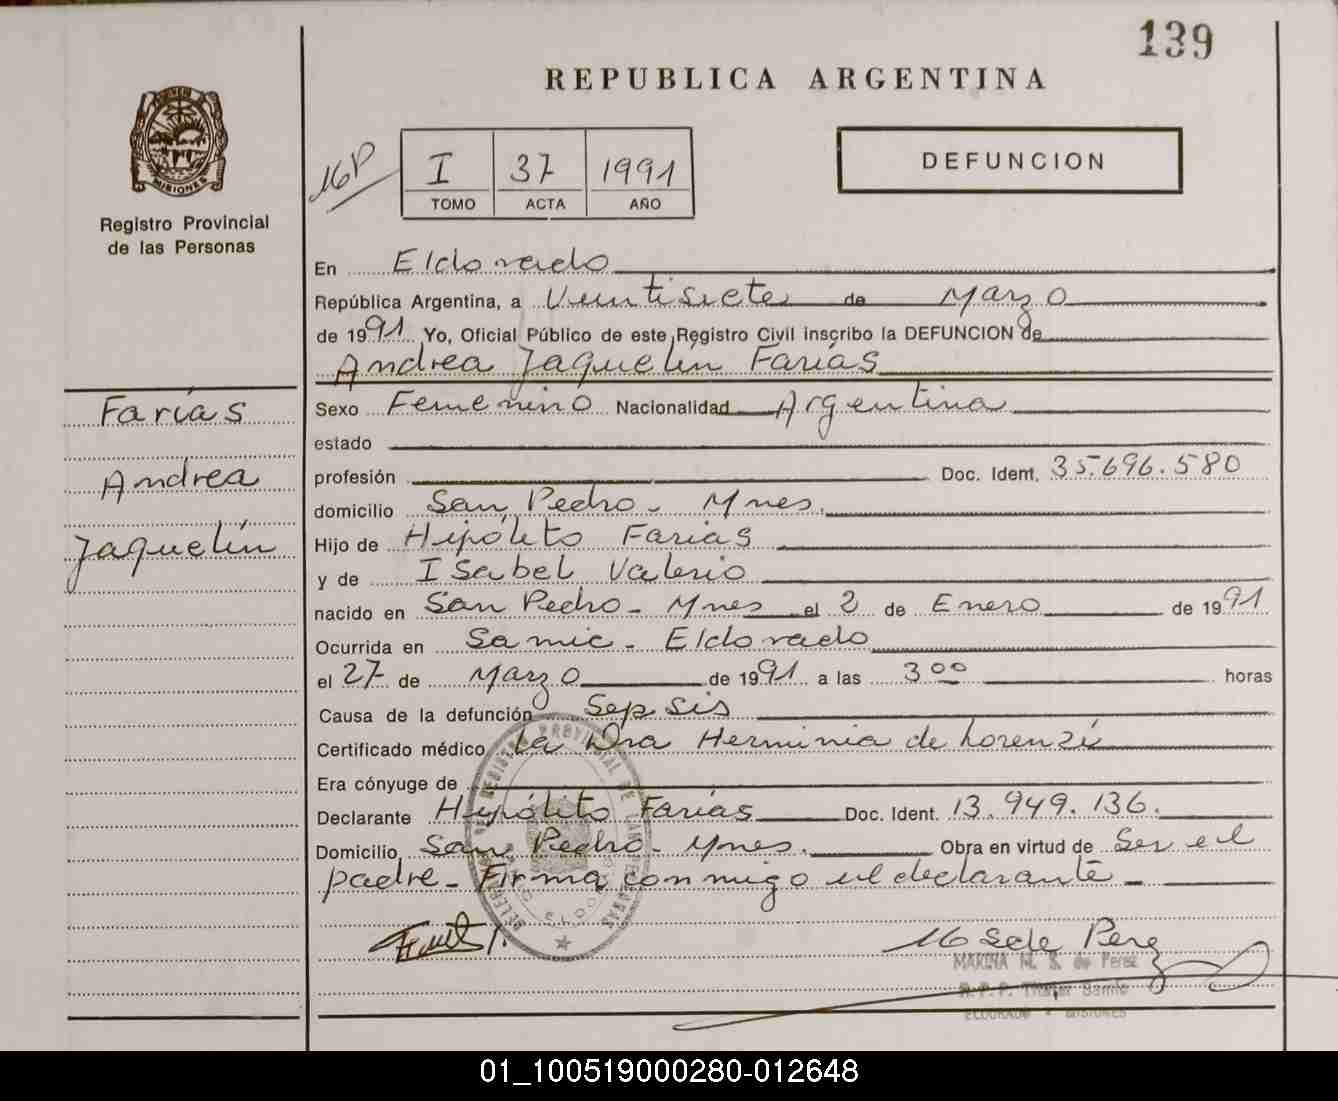 139
REPUBLICA ARGENTINA
MISIONES
Registro Provincial
de las Personas
I 37 1991
TOMO ACTA AÑO
DEFUNCION
En Eldorado
República Argentina, a Veintisiete de Marzo
de 1991 Yo, Oficial Público de este Registro Civil inscribo la DEFUNCION de
Andrea Jaquelín Farías
Farías
Andrea
Jaquelín
Sexo Femenino Nacionalidad Argentina
estado
profesión Doc. Ident. 35.696.580
domicilio San Pedro - Mnes.
Hijo de Hipólito Farias
y de Isabel Valerio
nacido en San Pedro - Mnes el 2 de Enero de 1991
Ocurrida en Samic - Eldorado
el 27 de Marzo de 1991 a las 3 00 horas
Causa de la defunción Sepsis
Certificado médico La Dra Herminia de Lorenzi
Era cónyuge de
Declarante Hipólito Farías Doc. Ident. 13.949.136.
Domicilio San Pedro - Mnes. Obra en virtud de Ser el
padre - Firma conmigo el declarante -
MARINA M. S. de Perez
ELDORADO - MISIONES
01_100519000280-012648